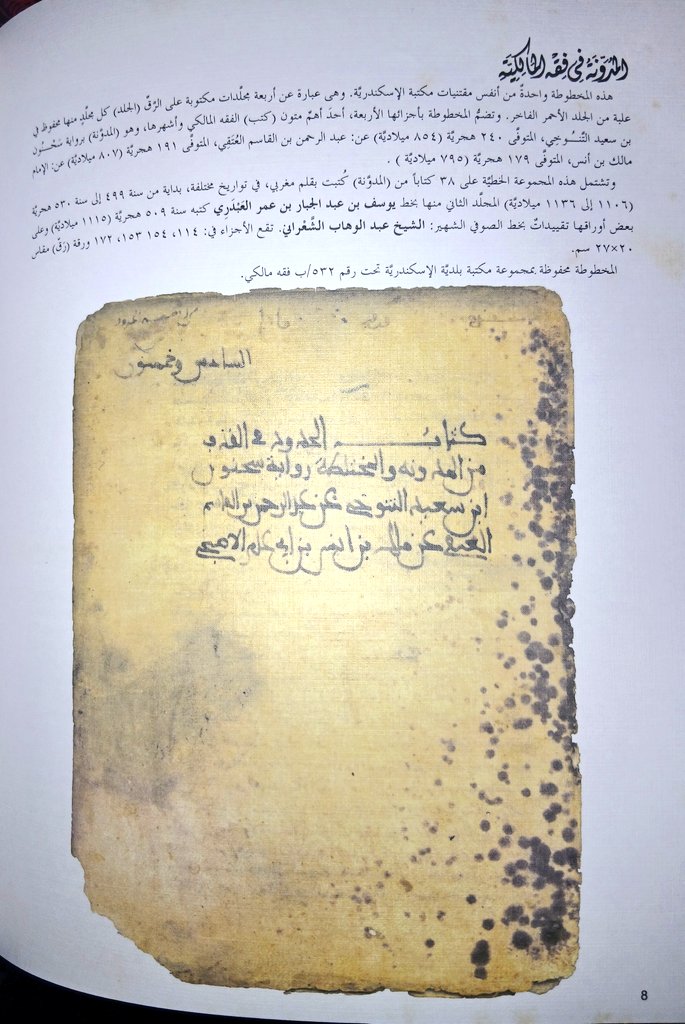 المُدَوَّنَة فى فقه المالكيَّة
هذه المخطوطة واحدةٌ من أنفس مقتنيات مكتبة الإسكندريَّة. وهى عبارة عن أربعة مجلَّدات مكتوبة على الرَّقِّ (الجلد) كل مجلَّدٍ منها محفوظ فى
علبة من الجلد الأحمر الفاخر. وتضمُّ المخطوطة بأجزائها الأربعة، أحدَ أهمِّ متون (كتب) الفقه المالكي وأشهرها، وهو (المدوَّنة) برواية سَحْنُون
بن سعيد التَّنُوخي، المتوفَّى ٢٤٠ هجريَّة (٨٥٤ ميلاديَّة) عن: عبد الرحمن بن القاسم العُتَقِي، المتوفَّى ١٩١ هجريَّة (٨٠٧ ميلاديَّة) عن: الإمام
مالك بن أنس، المتوفَّى ١٧٩ هجريَّة (٧٩٥ ميلاديَّة ) .
وتشتمل هذه المجموعة الخطيَّة على ٣٨ كتاباً من (المدوَّنة) كُتبت بقلم مغربي، فى تواريخ مختلفة، بداية من سنة ٤٩٩ إلى سنة ٥٣٠ هجريَّة
(١١٠٦ إلى ١١٣٦ ميلاديَّة) المجلَّد الثاني منها بخط يوسف بن عبد الجبار بن عمر العَبْدَري كتبه سنة ٥٠٩ هجريَّة (١١١٥ ميلاديَّة) وعلى
بعض أوراقها تقييداتٌ بخط الصوفي الشهير: الشيخ عبد الوهاب الشَّعْراني. تقع الأجزاء في: ١١٤، ١٥٤ ١٥٣، ١٧٢ ورقة (رَقّ) مقاس
٢٠×٢٧ سم.
المخطوطة محفوظة بمجموعة مكتبة بلديَّة الإسكندريَّة تحت رقم ٥٣٢/ب فقه مالكي.
السادس وخمسون
كتاب الحدود فى القذف
من المدونه والمختلطة رواية سحنون
ابن سعيد التنوخي عن عبد الرحمن بن القاسم
العتقي عن مالك بن انس بن ابي عامر الاصبحي
8